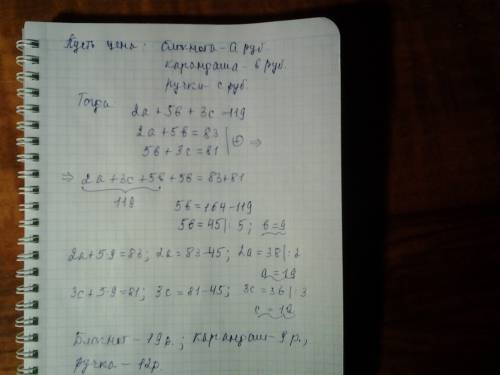 Пусть цена: блокнота - a руб.
карандаша - в руб.
ручки - c руб.
Тогда
2a + 5в + 3c - 119
2a + 5в = 83 | ⊕ ⇒
5в + 3c = 81
⇒ 2a + 3c + 5в + 5в = 83 + 81
119
5в = 164 - 119
5в = 45 |: 5; в = 9
2a + 5·9 = 83; 2a = 83 - 45; 2a = 38 |: 2
a = 19
3c + 5·9 = 81; 3c = 81 - 45; 3c = 36 |: 3
c = 12
Блокнот - 19 р.; карандаш - 9 р.,
ручка - 12р.